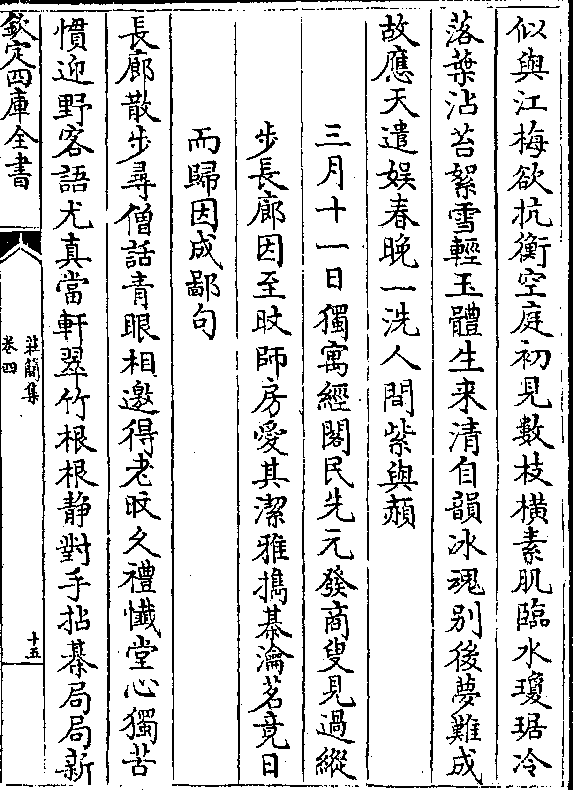 似與江梅欲抗衡空庭初見數枝橫素肌臨水瓊琚冷
落葉沾苔絮雪輕玉體生来清自韻冰魂别後夢難成
故應天遣娱春晚一洗人間紫與頳
三月十一日獨寓經閣民先元發商叟見過縱
步長廊因至旼師房愛其潔雅攜棊瀹茗竟日
而歸因成鄙句
長廊散步尋僧話青眼相邀得老旼久禮懺堂心獨苦
慣迎野客語尤真當軒翠竹根根静對手拈棊局局新
欽定四庫全書
莊簡集
卷四
十五